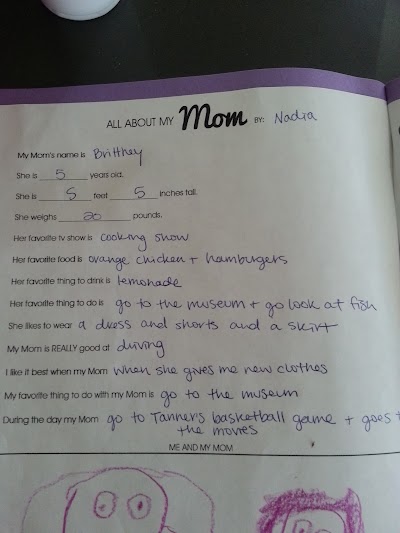 ALL ABOUT MY Mom BY: Nadia
My Mom's name is Brittney
She is 5 years old.
She is 5 feet 5 inches tall.
She weighs 20 pounds.
Her favorite tv show is cooking show
Her favorite food is orange chicken + hamburgers
Her favorite thing to drink is lemonade
Her favorite thing to do is go to the museum + go look at fish
She likes to wear a dress and shorts and a skirt
My Mom is REALLY good at driving
I like it best when my Mom when she gives me new clothes
My favorite thing to do with my Mom is go to the museum
During the day my Mom go to Tanner's basketball game + goes t
the movies
ME AND MY MOM